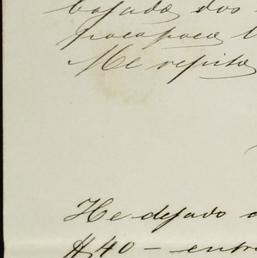 bajada dos
poco poco
Me repito
He dejado
$40 – entr